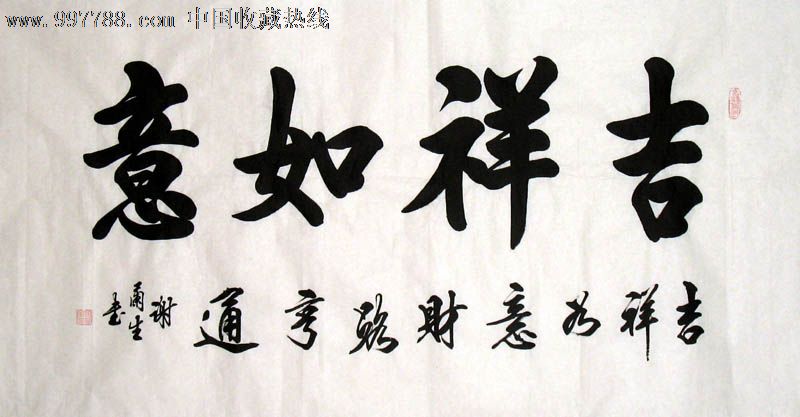 www.997788.com 中国收藏热线
吉祥如意
吉祥如意財路亨通
谢甬生书